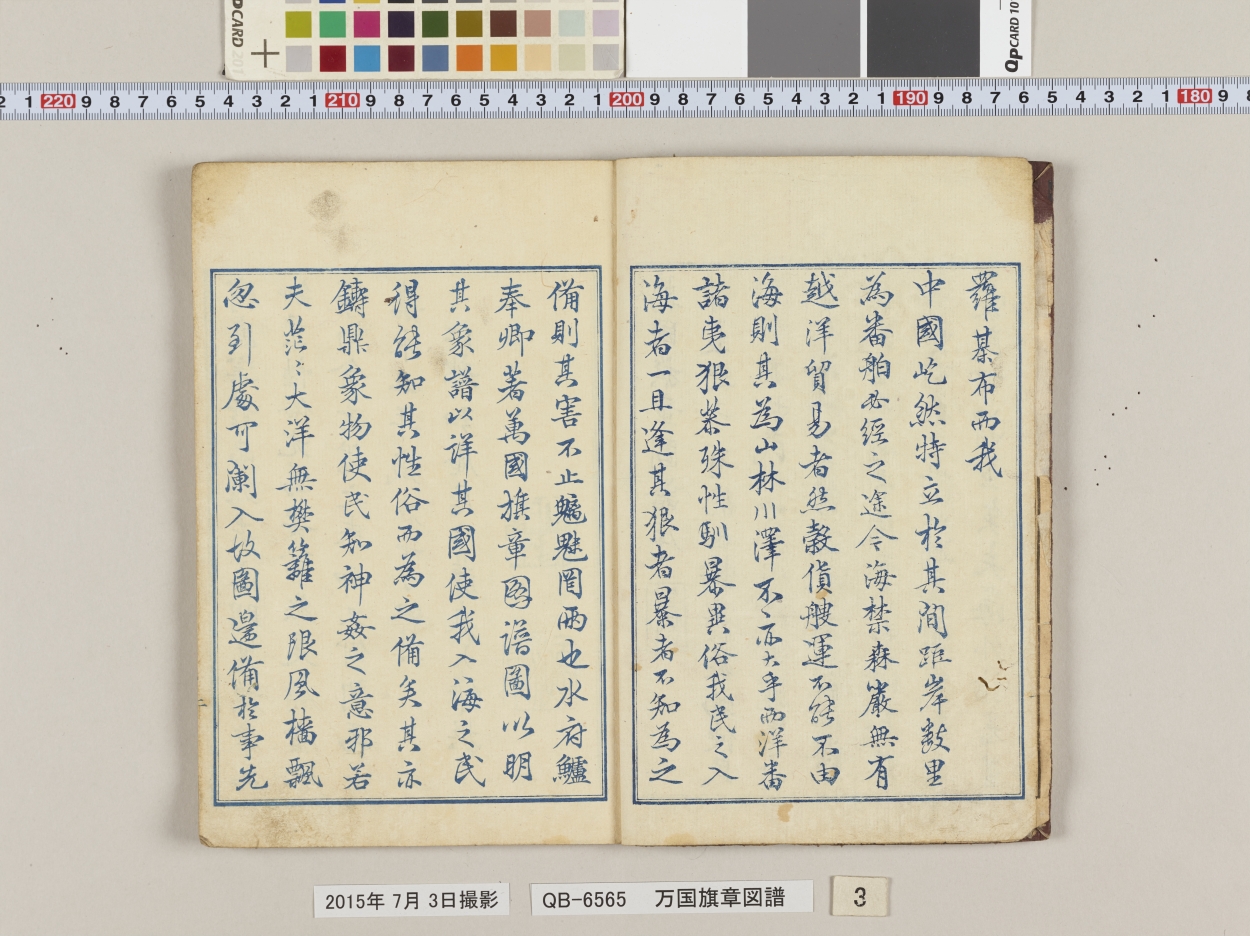 OpCARD 201
OpCARD 10
2 1 220 9 8 7 6 5 4 3 2 1 210 9 8 7 6 5 4 3 2 1 200 9 8 7 6 5 4 3 2 1 190 9 8 7 6 5 4 3 2 1 180 9 8
羅棊布而我
中國屹然特立於其間距岸數里
為番舶必經之途今海禁森嚴無有
越洋貿易者然穀貨艘運不能不由
海則其為山林川澤不〻亦大乎西洋番
諸夷狠桀殊性馴暴異俗我民之入
海者一旦逢其狠者暴者不知為之
備則其害不止魑魅罔兩也水府鱸
奉卿著萬國旗章圖譜圖以明
其象譜以詳其國使我入海之民
得能知其性俗而為之備矣其亦
鑄鼎象物使民知神姦之意邪若
夫茫〻大洋無樊籬之限風檣飄
忽到處可闌入故圖邊備於事先
2015年 7月 3日撮影
QB-6565 万国旗章図譜
3